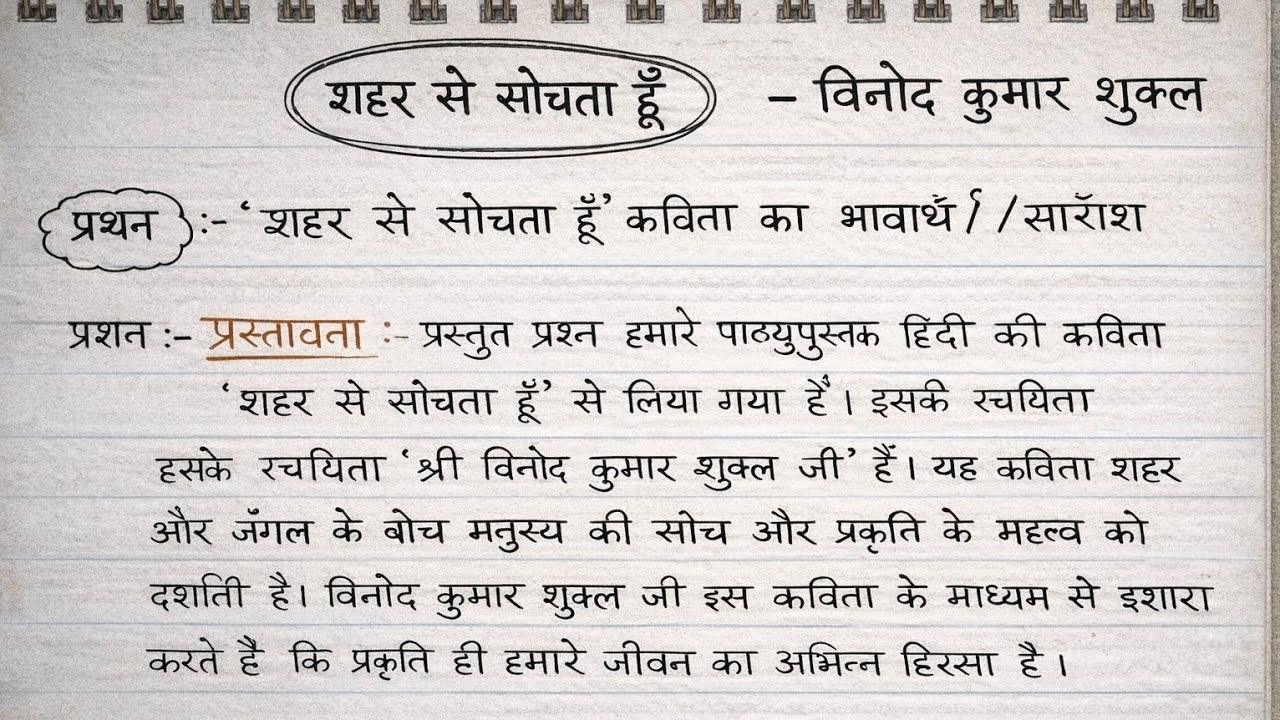 शहर से सोचता हूँ - विनोद कुमार शुक्ल
प्रथन :- ‘शहर से सोचता हूँ’ कविता का भावार्थ / सारॅाश
प्रशत :- प्रस्तावता :- प्रस्तुत प्रश्न हमारे पाठयुपुस्तक हिंदी की कविता
‘शहर से सोचता हूँ’ से लिया गया हैं। इसके रचयिता
हसके रचयिता ‘श्री विनोद कुमार शुक्ल जी’ हैं। यह कविता शहर
और जॅंगल के बोच मनुस्य की सोच और प्रकृति के महत्व को
दर्शाती है। विनोद कुमार शुक्ल जी इस कविता के माध्यम से इशारा
करते है कि प्रकृति ही हमारे जीवन का अभिन्न हिरसा है।